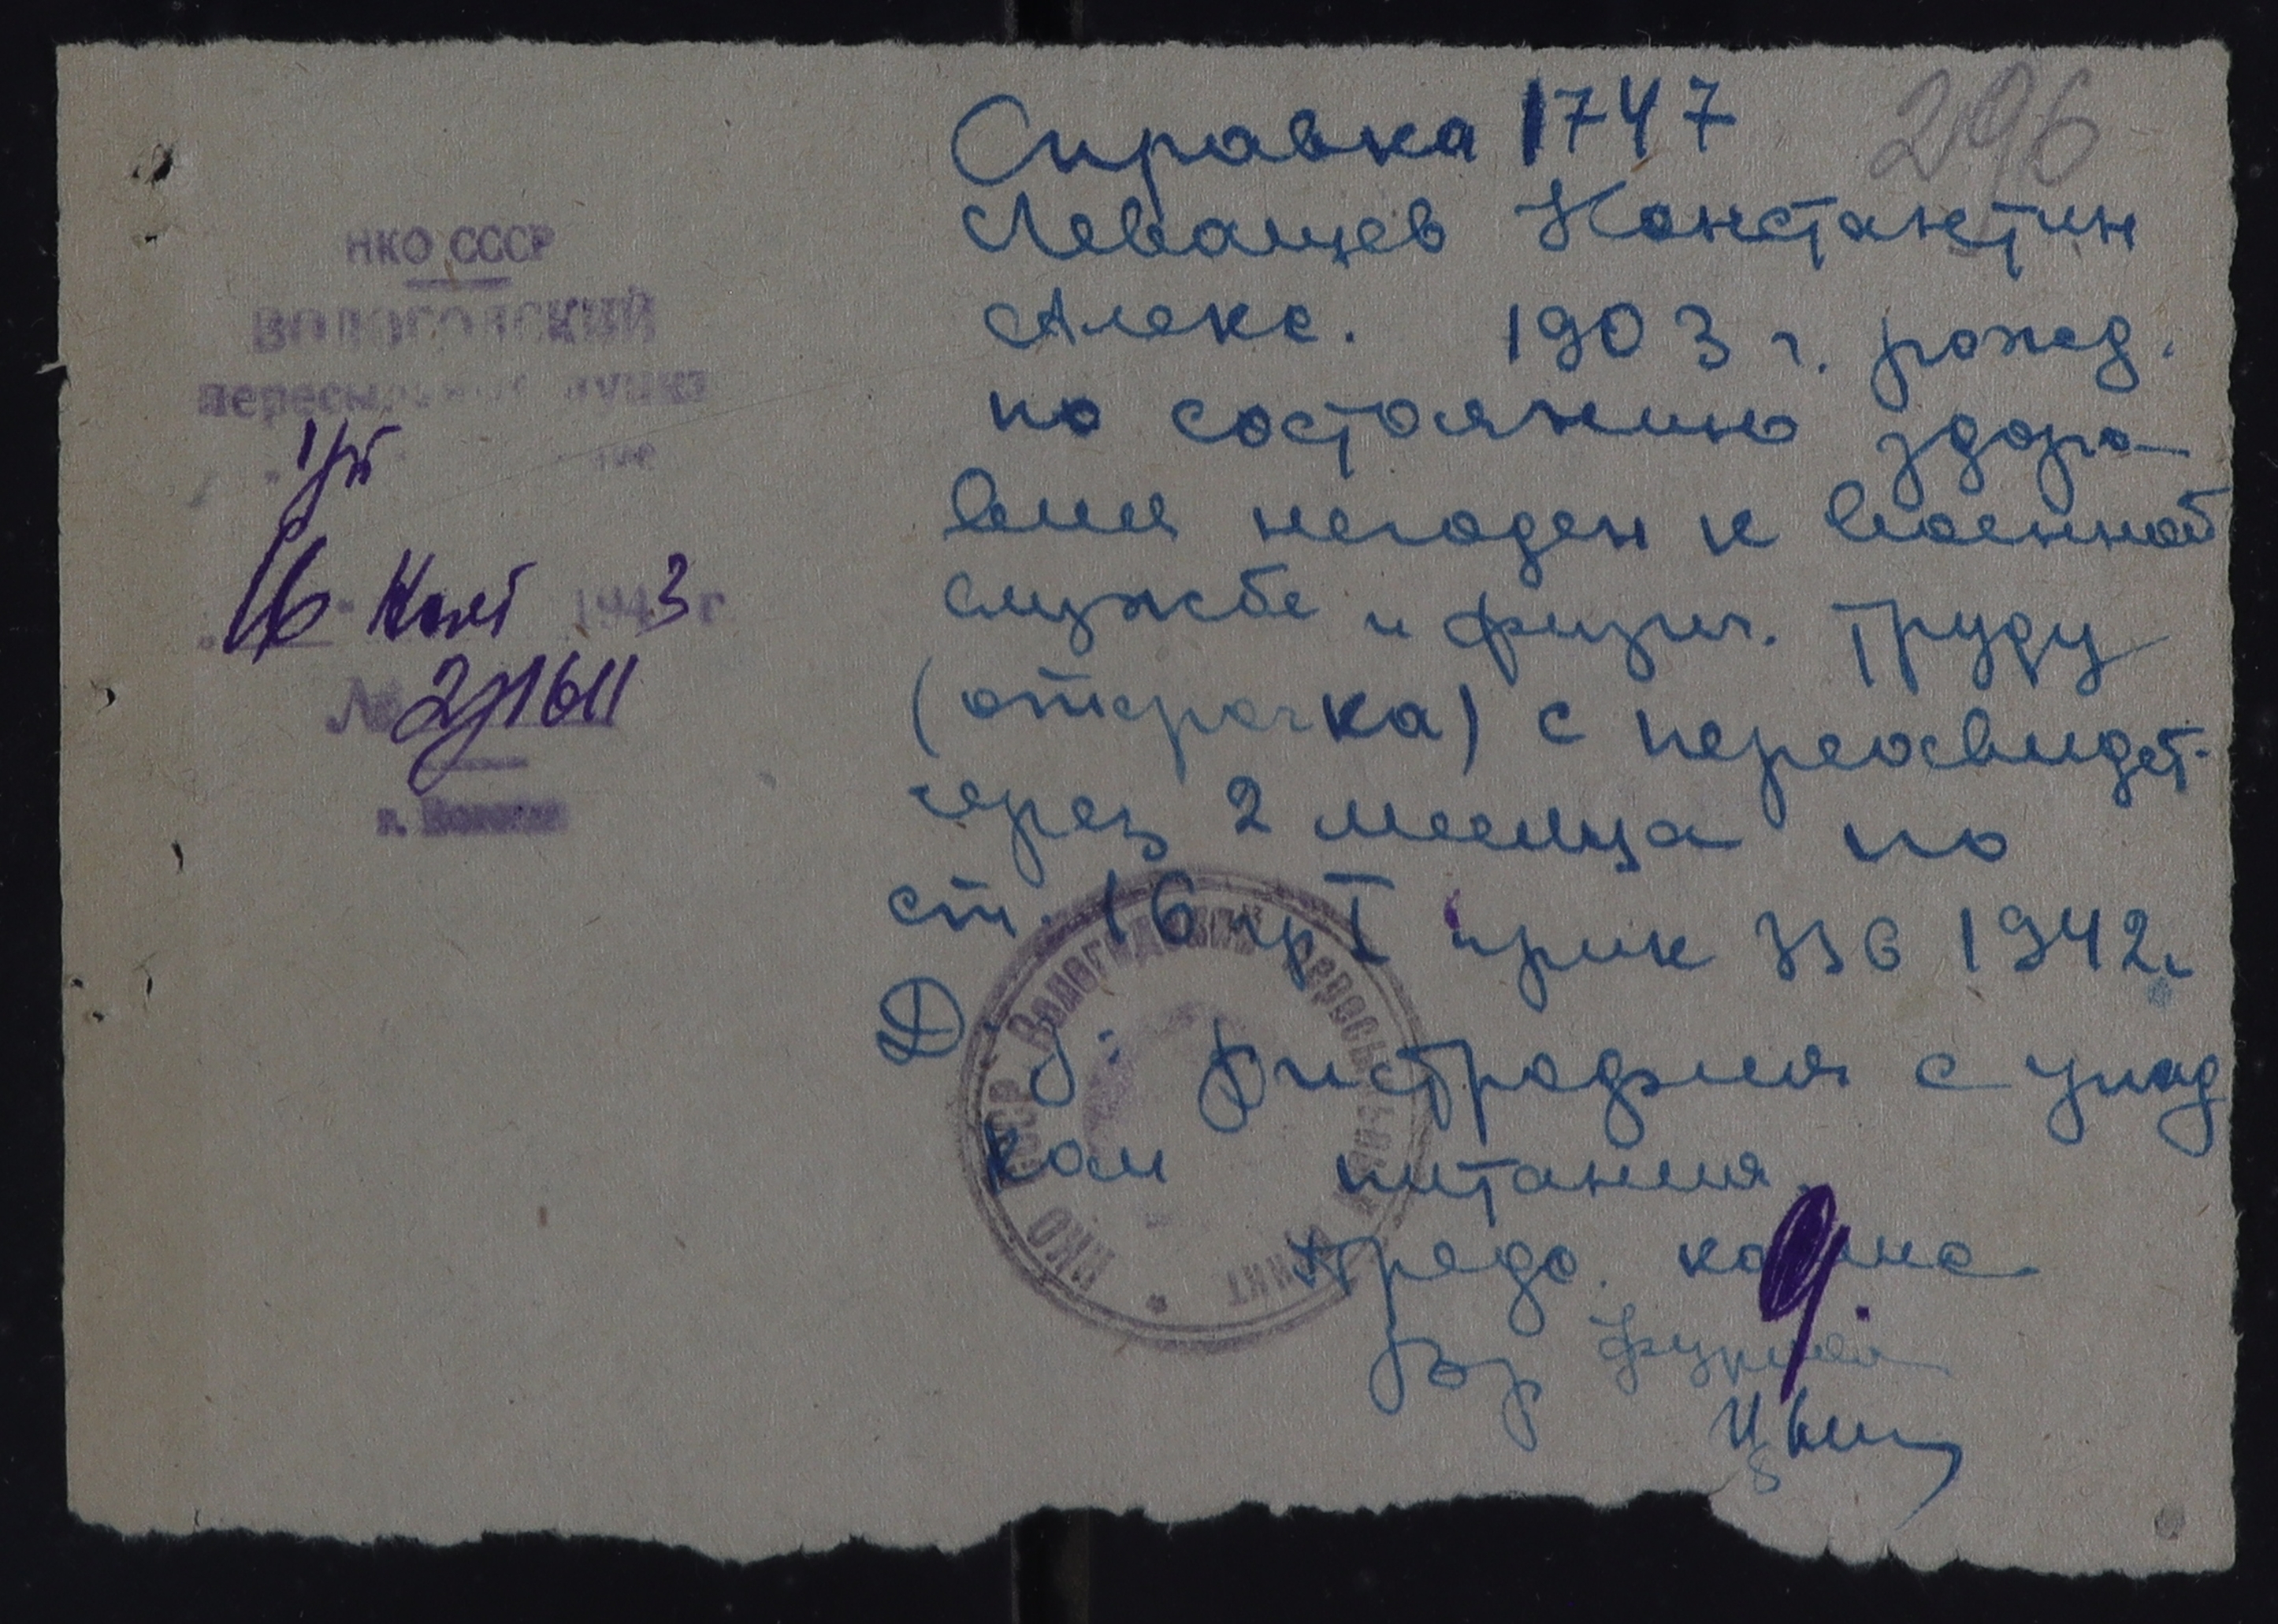 296
Справка 1747
НКО СССР
ВОЛОГОДСКИЙ
пересыльный пункт
16 1943 г
№ 2/1611
г. Вологда
Левашев Константин
Алекс. 1903 г. рожд.
по состоянию здоро-
вия негоден к военной
службе и физич. труду
(отсрочка) с переосвидет.
через 2 месяца по
ст. 16 гр I прик 336 1942г
Д-з: Дистрофия с упад
ком питания.
Предс. комис
Вр
НКО СССР Вологодский пересыльный пункт